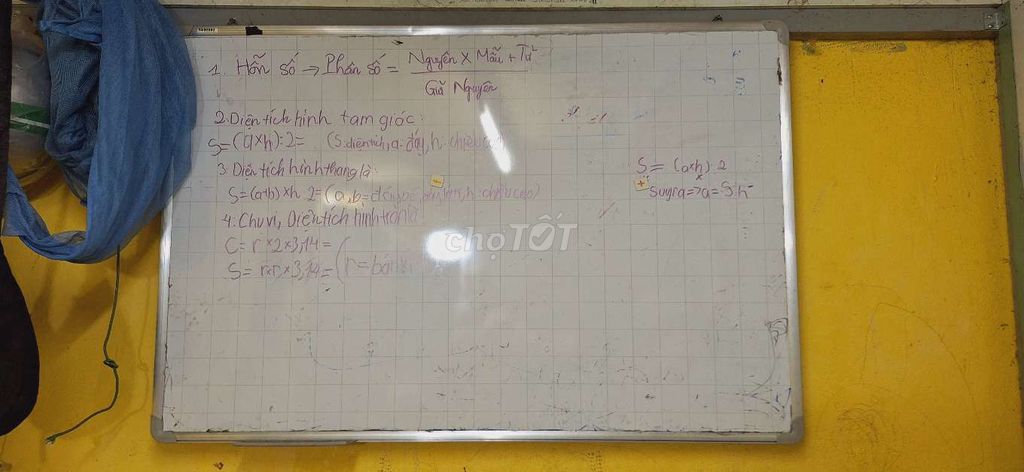 1. Hỗn số → Phân số = Nguyên x Mẫu + Tử
Giữ Nguyên
2. Diện tích hình tam giác:
S = (a x h) : 2 = (S. diện tích, a. đáy, h. chiều cao)
3. Diện tích hình thang là:
S = (a+b) x h : 2 = (a, b = đáy
4. Chu vi, Diện tích hình tròn là
C = r x 2 x 3,14 =
S = r x r x 3,14 = (r = bán
S = (a x h) : 2
suy ra => a = S : h
chợTỐT